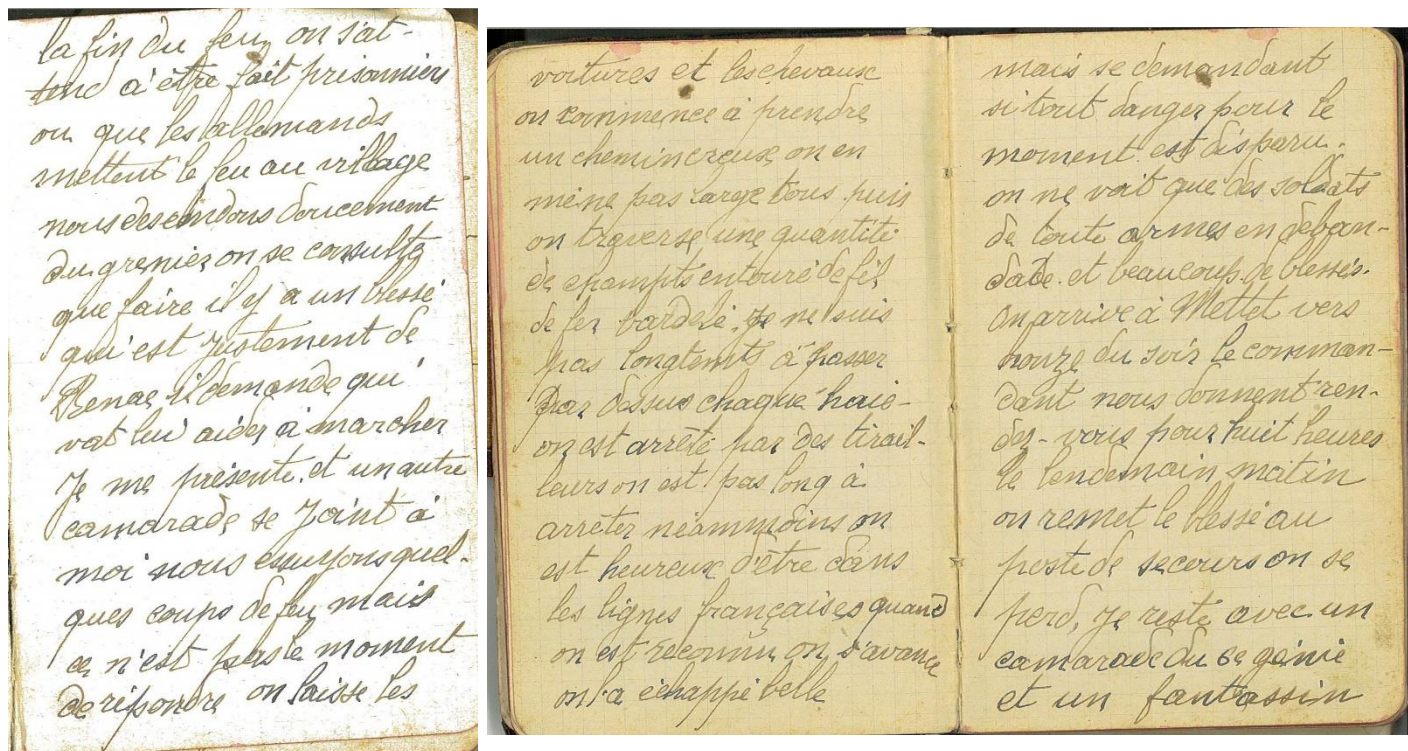 la fin du feu, on s'at-
tend à être fait prisonniers
ou que les allemands
mettent le feu au village
nous descendons doucement
du grenier on se consulte
que faire il y a un blessé
qui est justement de
Renac il demande qui
vat lui aider à marcher
Je me présente. et un autre
camarade se joint à
moi nous essuyons quel-
ques coups de feu, mais
ce n'est pas le moment
de répondre on laisse les
voitures et les chevaux
on commence à prendre
un chemin creux on en
mène pas large tous puis
on traverse une quantité
de champts entouré de fil
de fer bardelé. Je ne suis
pas longtemts à passer
par dessus chaque haie-
on est arrêté par des tirail-
leurs on est pas long à
arrêter néammoins on
est heureux d'être dans
les lignes françaises quand
on est reconnu on s'avance
on l'a échappé belle
mais se demandant
si tout danger pour le
moment est disparu.
on ne voit que des soldats
de toute armes en deban-
dade. et beaucoup de blessés.
On arrive à Mettet vers
nouze du soir le comman-
dant nous donnent ren-
dez-vous pour huit heures
le lendemain matin
on remet le blessé au
poste de secours on se
perd, je reste avec un
camarade du 6e génie
et un fantassin